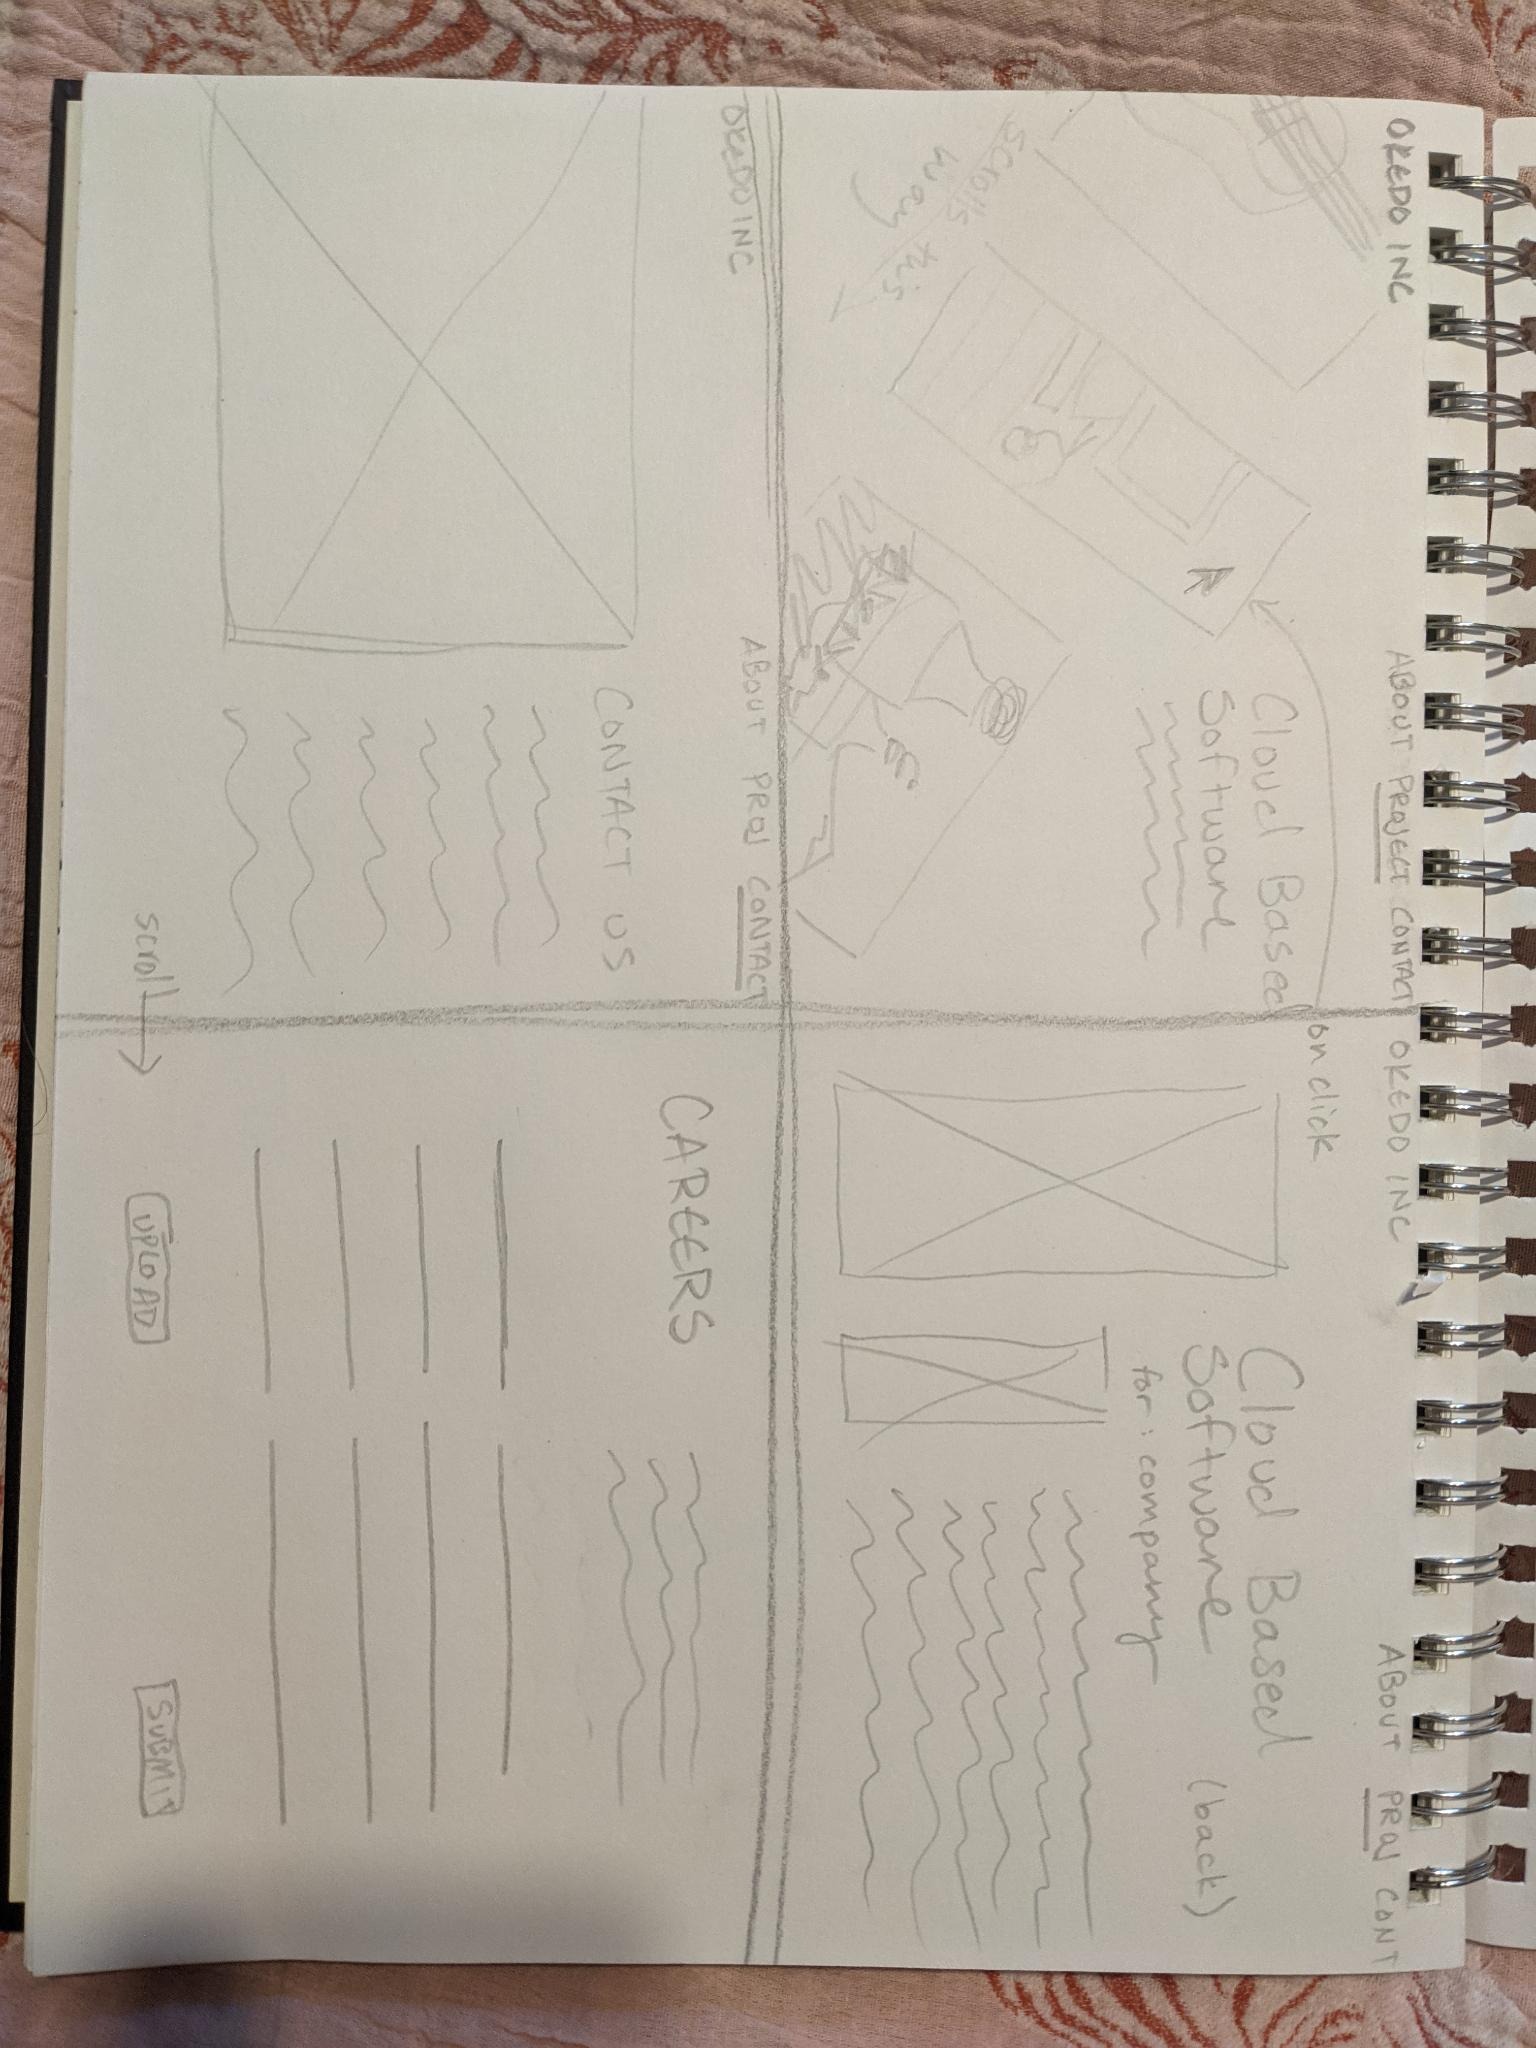 OKEDO INC
ABOUT PROJECT CONTACT
Cloud Based
Software
scrolls this
way
OKEDO INC
ABOUT PROJ CONT
on click
Cloud Based
Software
(back)
for: company
OKEDO INC
ABOUT PROJ CONTACT
CONTACT US
scroll
CAREERS
UPLOAD
SUBMIT